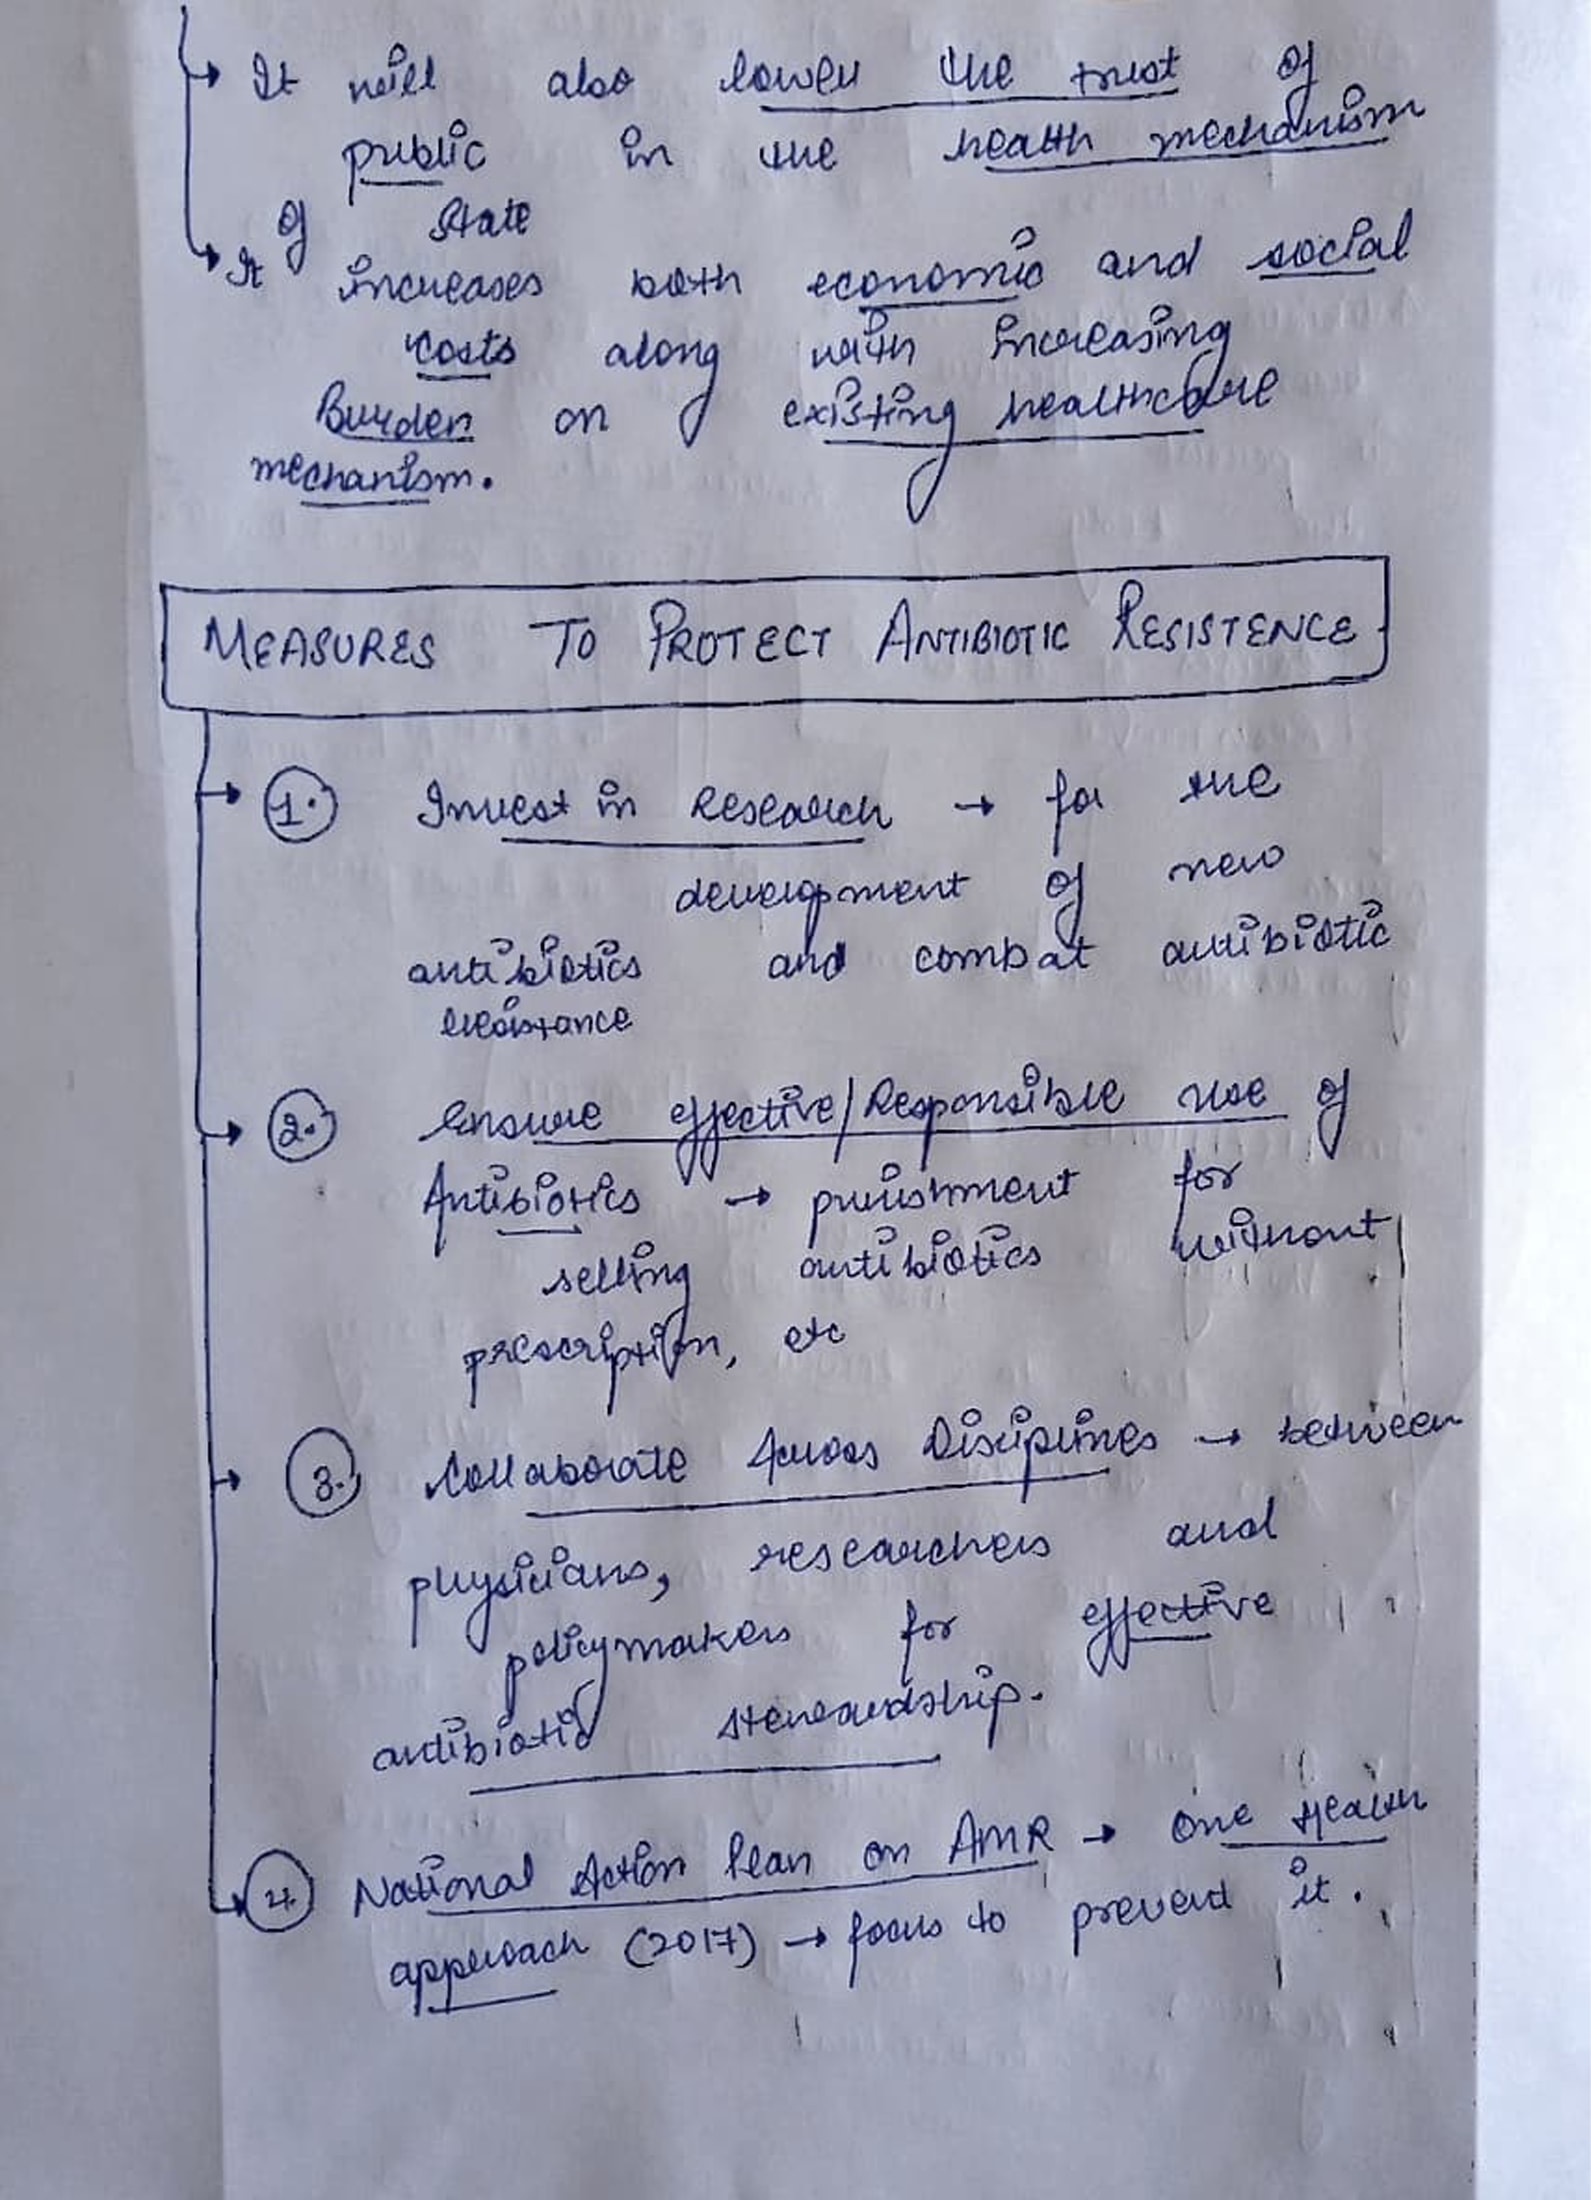 It will also lower the trust of
public in the health mechanism
of State
It increases both economic and social
costs along with increasing
Burden on existing healthcare
mechanism.
MEASURES TO PROTECT ANTIBIOTIC RESISTENCE.
1. Invest in Research → for the
development of new
antibiotics and combat antibiotic
resistance
2. Ensure effective/Responsible use of
Antibiotics → punishment for
selling antibiotics without
prescription, etc
3. Collaborate Across Disciplines → between
physicians, researchers and
policymakers for effective
antibiotic stewardship.
4. National Action Plan on AMR → One Health
approach (2017) → focus to prevent it.